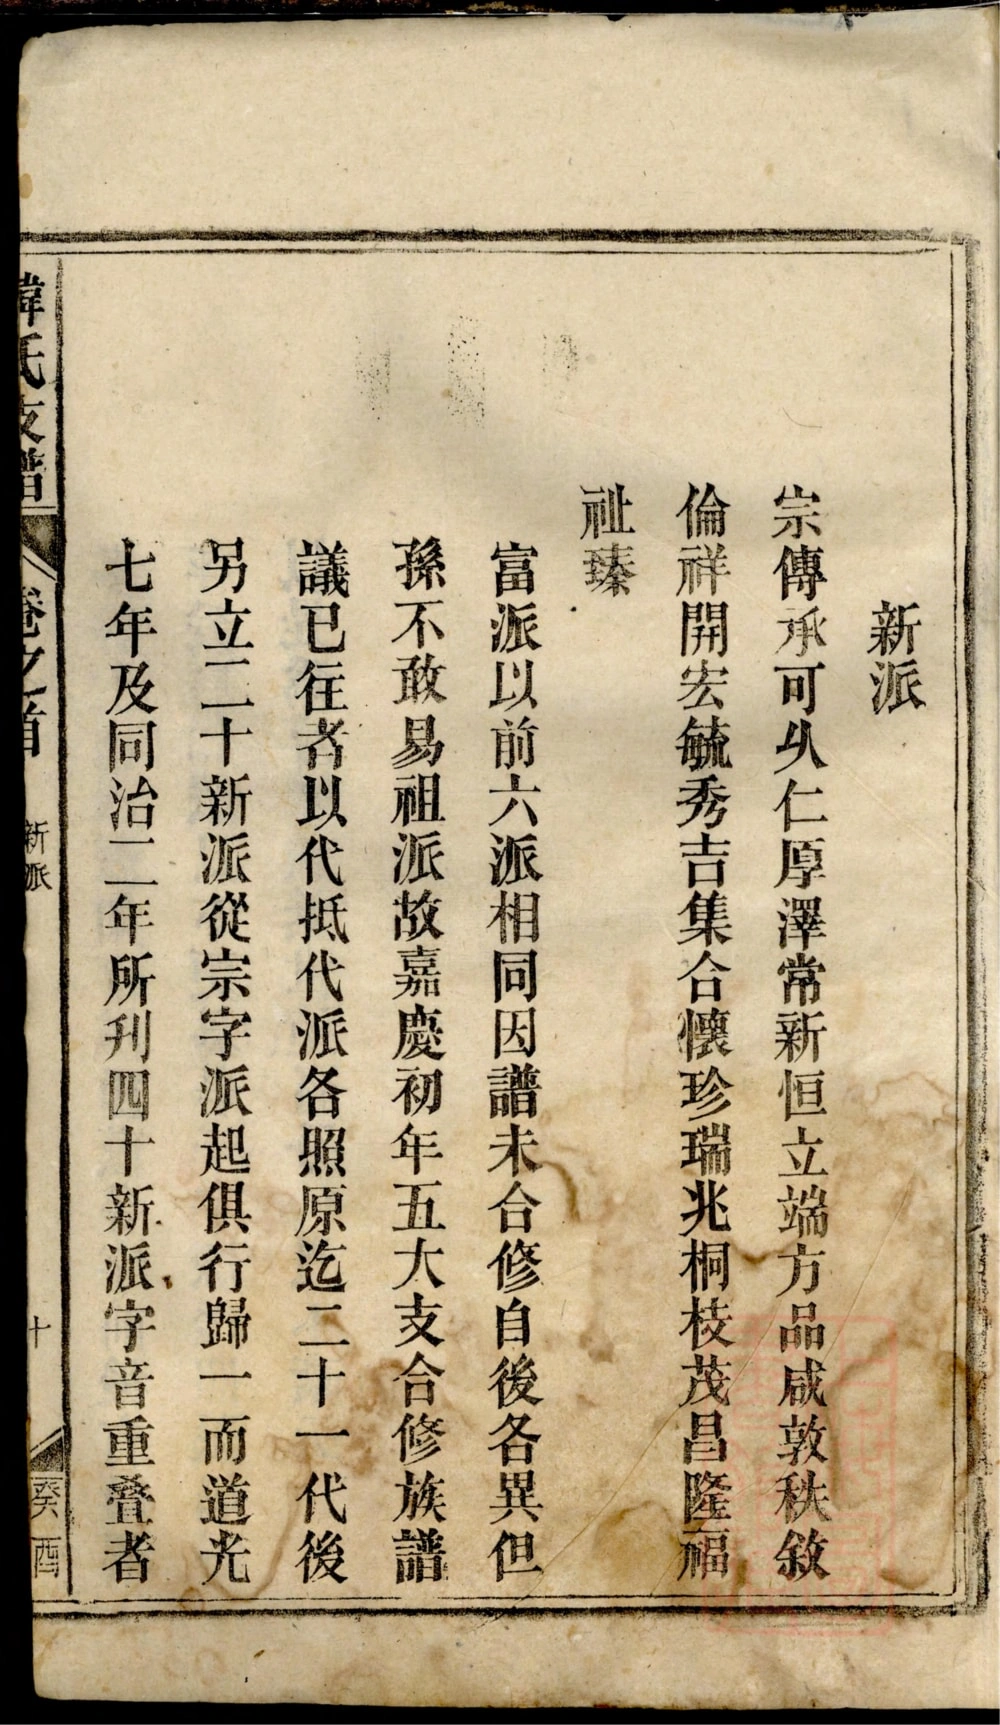 新派
宗傳承可㕥仁厚澤常新恒立端方品咸敦秩敘
倫祥開宏毓秀吉集合懷珍瑞兆桐枝茂昌隆福
祉臻
富派以前六派相同因譜未合修自後各異但
孫不敢易祖派故嘉慶初年五大支合修族譜
議已往者以代抵代派各照原迄二十一代後
另立二十新派從宗字派起俱行歸一而道光
七年及同治二年所刊四十新派字音重疊者
韓氏支譜
卷之首
新派
十
癸酉